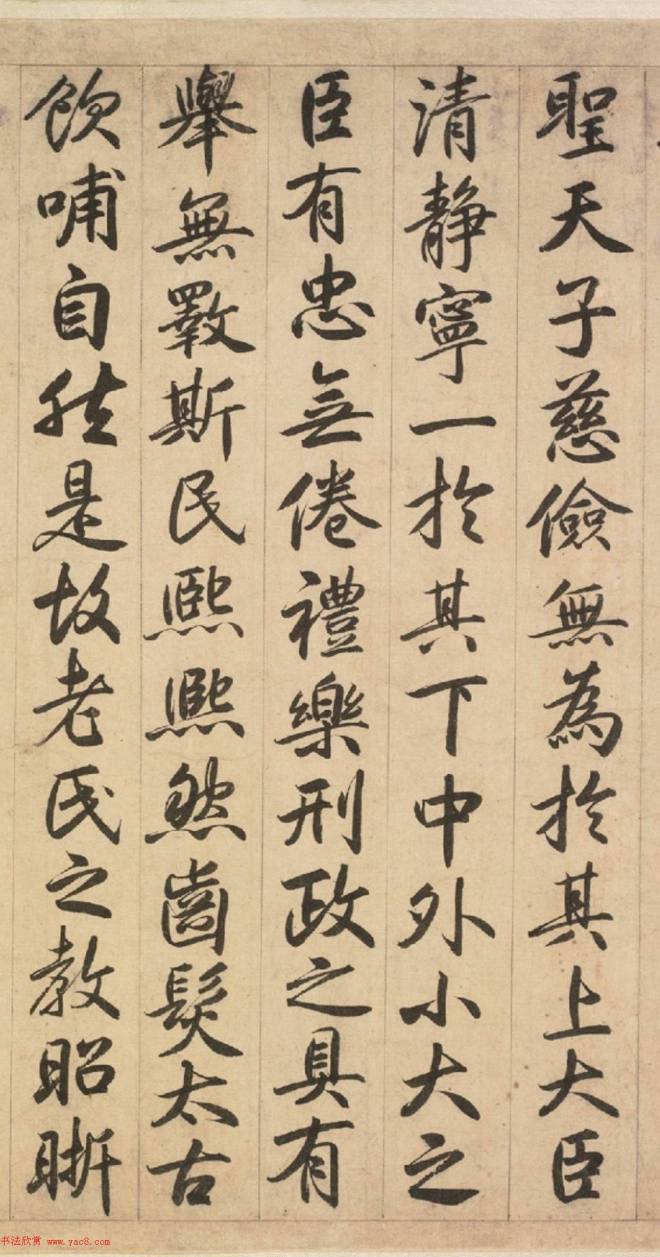 聖天子慈儉無為於其上大臣
清靜寧一於其下中外小大之
臣有忠無倦禮樂刑政之具有
舉無斁斯民熙熙然齒髮太古
飲哺自然是故老氏之教昭晣
书法欣赏 www.yac8.com